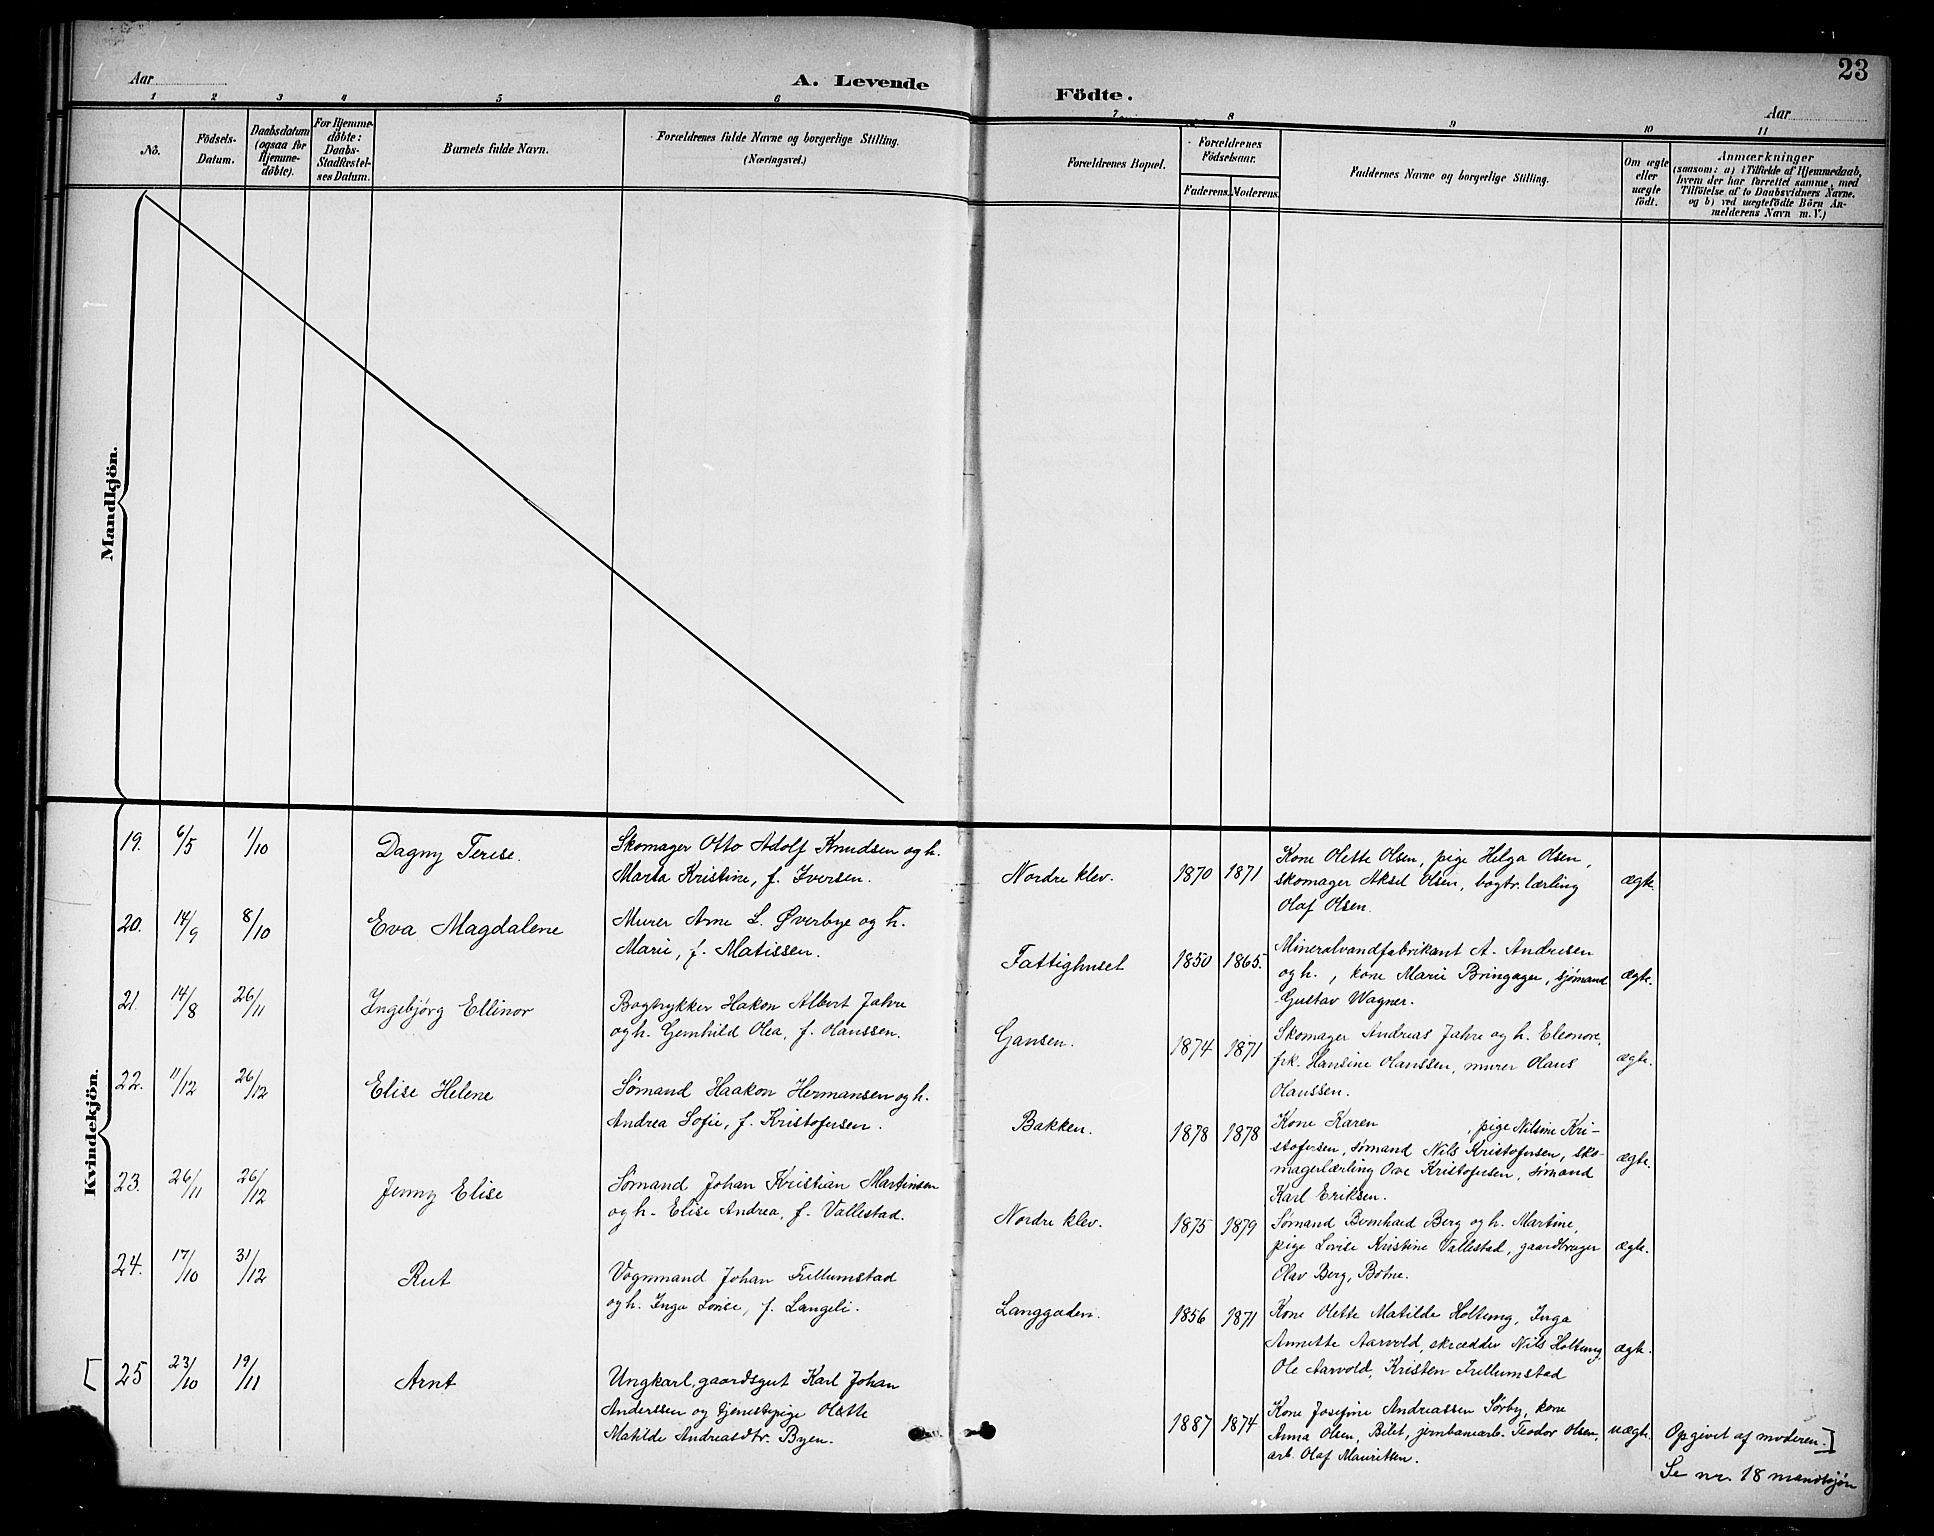 23
Aar
A. Levende
Födte.
Aar
1 2 3 4 5 6 7 8 9 10 11
No.
Födsels-
Datum.
Daabsdatum
(ogsaa for
Hjemme-
döbte).
For Hjemme-
döbte:
Daabs-
Stadfæstel-
ses Datum.
Barnets fulde Navn.
Forældrenes fulde Navne og borgerlige Stilling.
(Næringsvei.)
Forældrenes Bopæl.
Forældrenes
Födselsaar.
Faderens. Moderens.
Faddernes Navne og borgerlige Stilling.
Om ægte
eller
uægte
födt.
Anmærkninger
(saasom: a) i Tilfælde af Hjemmedaab,
hvem der har forrettet samme, med
Tilföielse af to Daabsvidners Navne,
og b) ved uægtefödte Börn An-
melderens Navn m. V.)
Mandkjön.
Kvindekjön.
19. 6/5 1/10 Dagny Terese.
Skomager Otto Adolf Knudsen og h.
Marta Kristine, f. Iversen.
Nordre klev. 1870 1871
Kone Olette Olsen, pige Helga Olsen,
skomager Aksel Olsen, bogtr. lærling
Olaf Olsen.
ægte.
20. 14/9 8/10 Eva Magdalene
Murer Arne L. Øverbye og h.
Marie, f. Matissen.
Fattighuset 1850 1865.
Mineralvandfabrikant A. Andresen
og h., kone Marie Bringager, sjømand
Gustav Wagner.
ægte.
21. 14/8 26/11 Ingebjørg Ellinor
Bogtrykker Hakon Albert Jahre
og h. Gernhild Olea, f. Olanssen.
Gansen. 1874 1871
Skomager Andreas Jahre og h. Eleonore,
frk. Hansine Olanssen, murer Olaus
Olanssen.
ægte.
22. 11/12 26/12 Elise Helene
Sømand Haakon Hermansen og h.
Andrea Sofie, f. Kristofersen.
Bakken. 1878 1878
Kone Karen , pige Nilsine Kri-
stofersen, sømand Nils Kristofersen, sko-
magerlærling Ove Kristofersen, sømand
Karl Eriksen.
ægte.
23. 26/11 26/12 Jenny Elise
Sømand Johan Kristian Martinsen
og h. Elise Andrea, f. Vallestad.
Nordre klev. 1875 1879
Sømand Bernhard Berg og h. Martine,
pige Lovise Kristine Vallestad, gaardbruger
Olav Berg, Botne.
ægte.
24. 17/10 31/12 Rut
Vognmand Johan Trillumstad
og h. Inga Lovise, f. Langeli.
Langgaden. 1856 1871
Kone Olette Matilde Holtung, Inga
Annette Aarvold, skrædder Nils Holtung,
Ole Aarvold, Kristen Trillumstad
ægte.
[ 25 23/10 19/11 Arnt
Ungkarl, gaardsgut Karl Johan
Anderssen og tjenestepige Olette
Matilde Andreasdtr. Byen.
1887 1874
Kone Josefine Andreassen Sørby, kone
Anna Olsen, Bilet, jernbanearb. Teodor Olsen,
arb. Olaf Mauritzen.
uægte.
Opgivet af moderen.]
Se nr. 18 mandkjøn